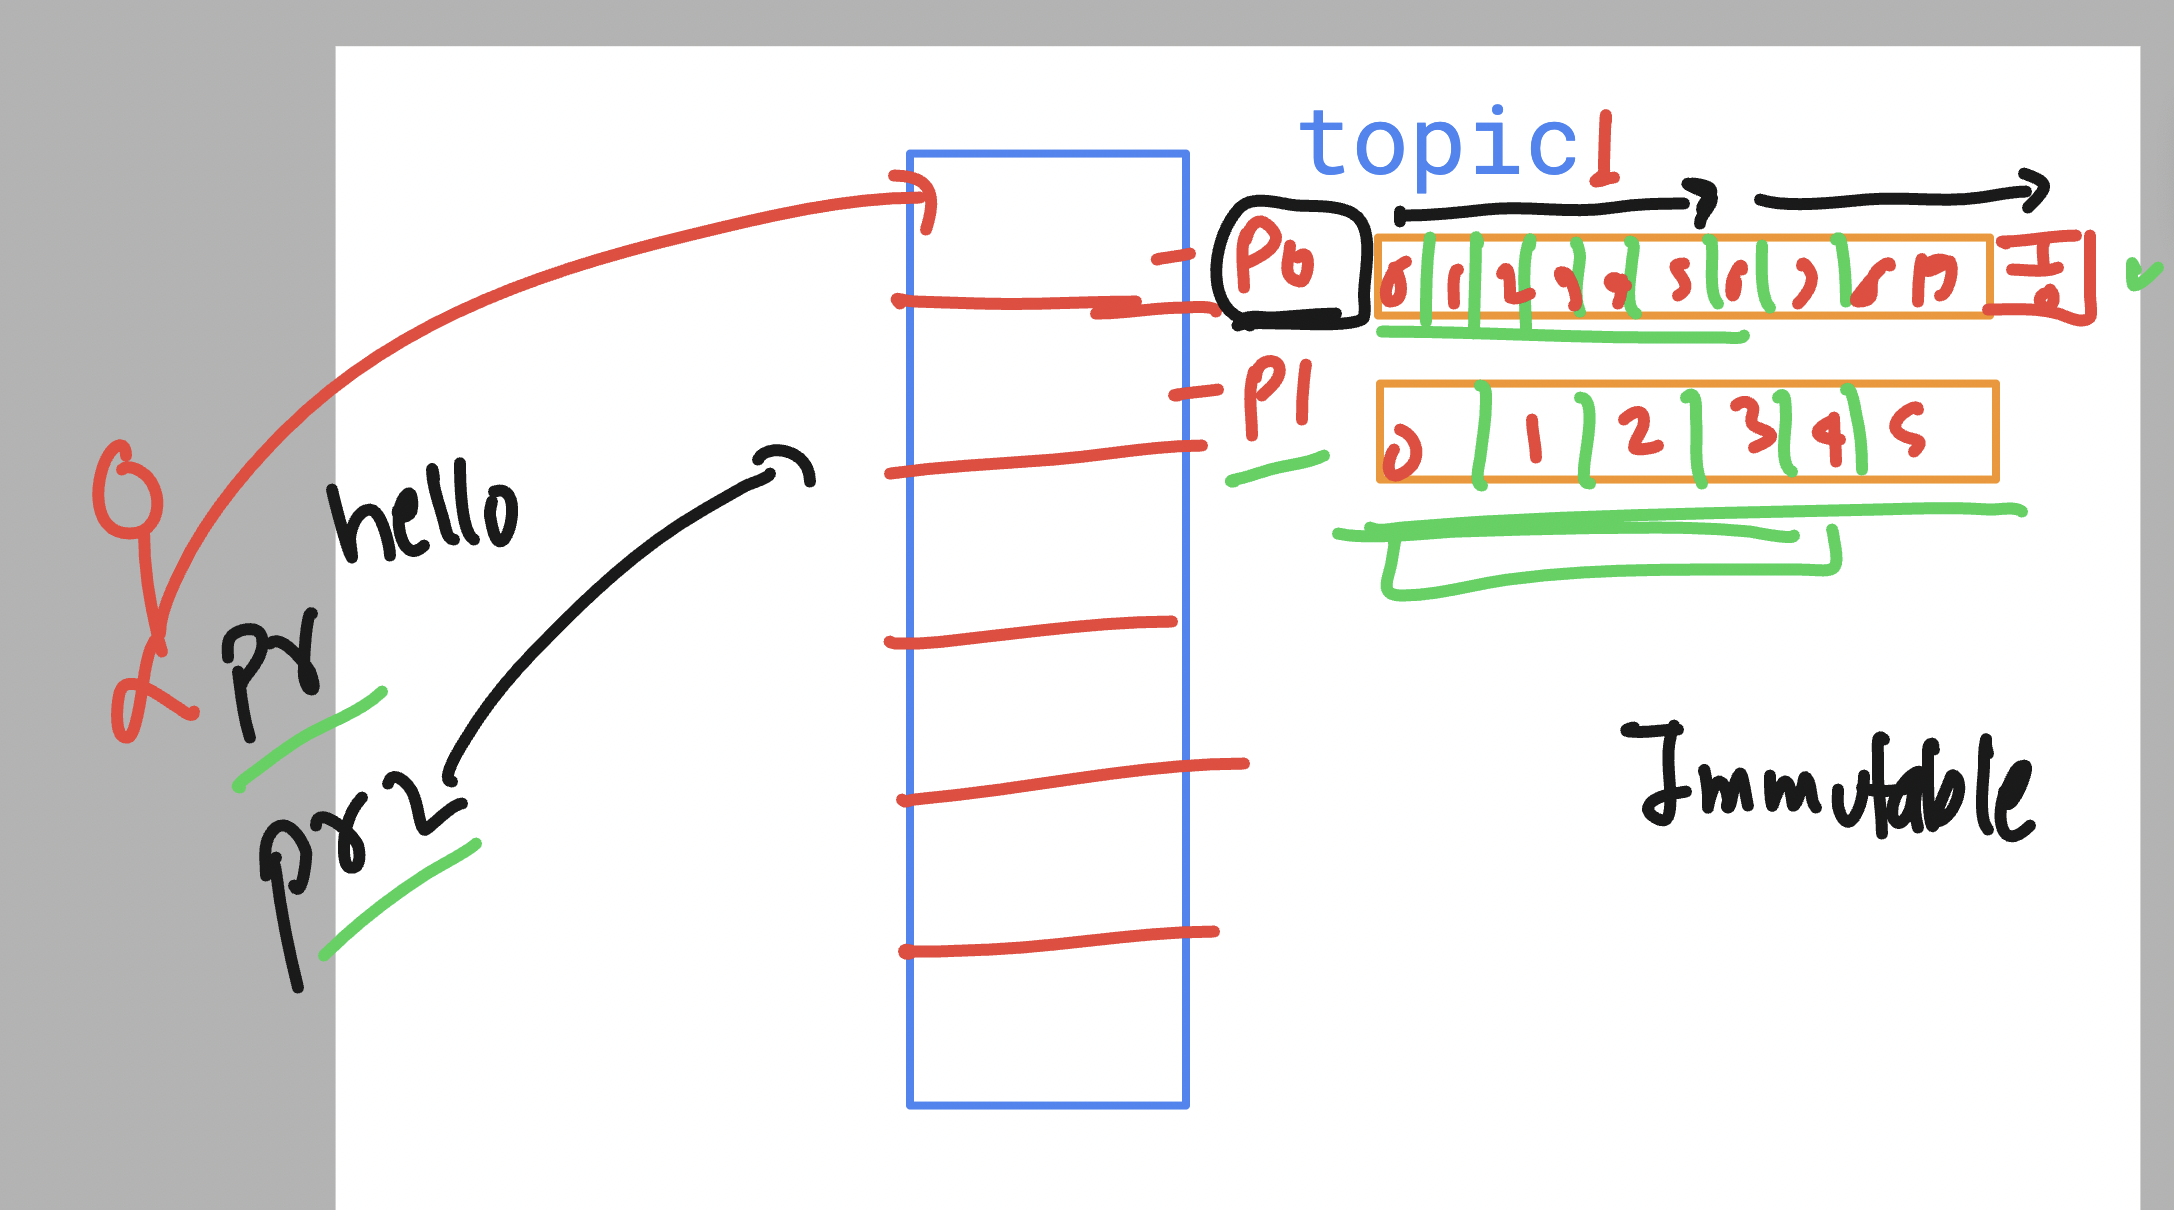 topic1
P0 0 1 2 3 4 5 6 7 8
P1 0 1 2 3 4 5
hello
pr
pr2
Immutable